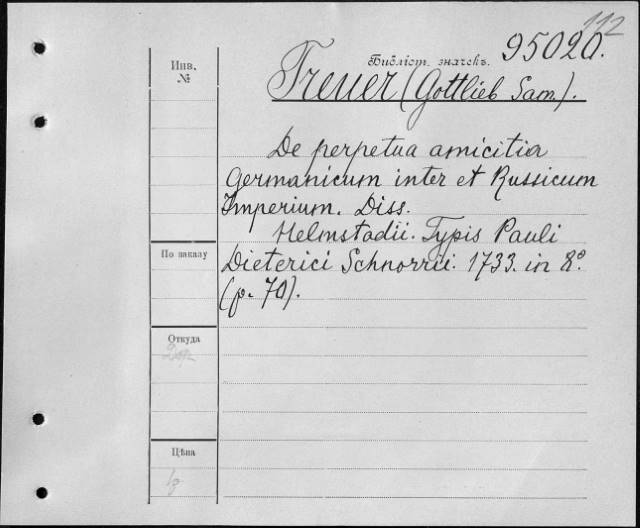 112
Библіот. значекъ. 95020.
Инв.
№
Treuer (Gottlieb Sam.).
De perpetua amicitia
Germanicum inter et Russicum
Imperium. Diss.
Helmstadii. Typis Pauli
Dieterici Schnorrii. 1733. in 8º
(p. 70).
По заказу
Откуда
Цѣна